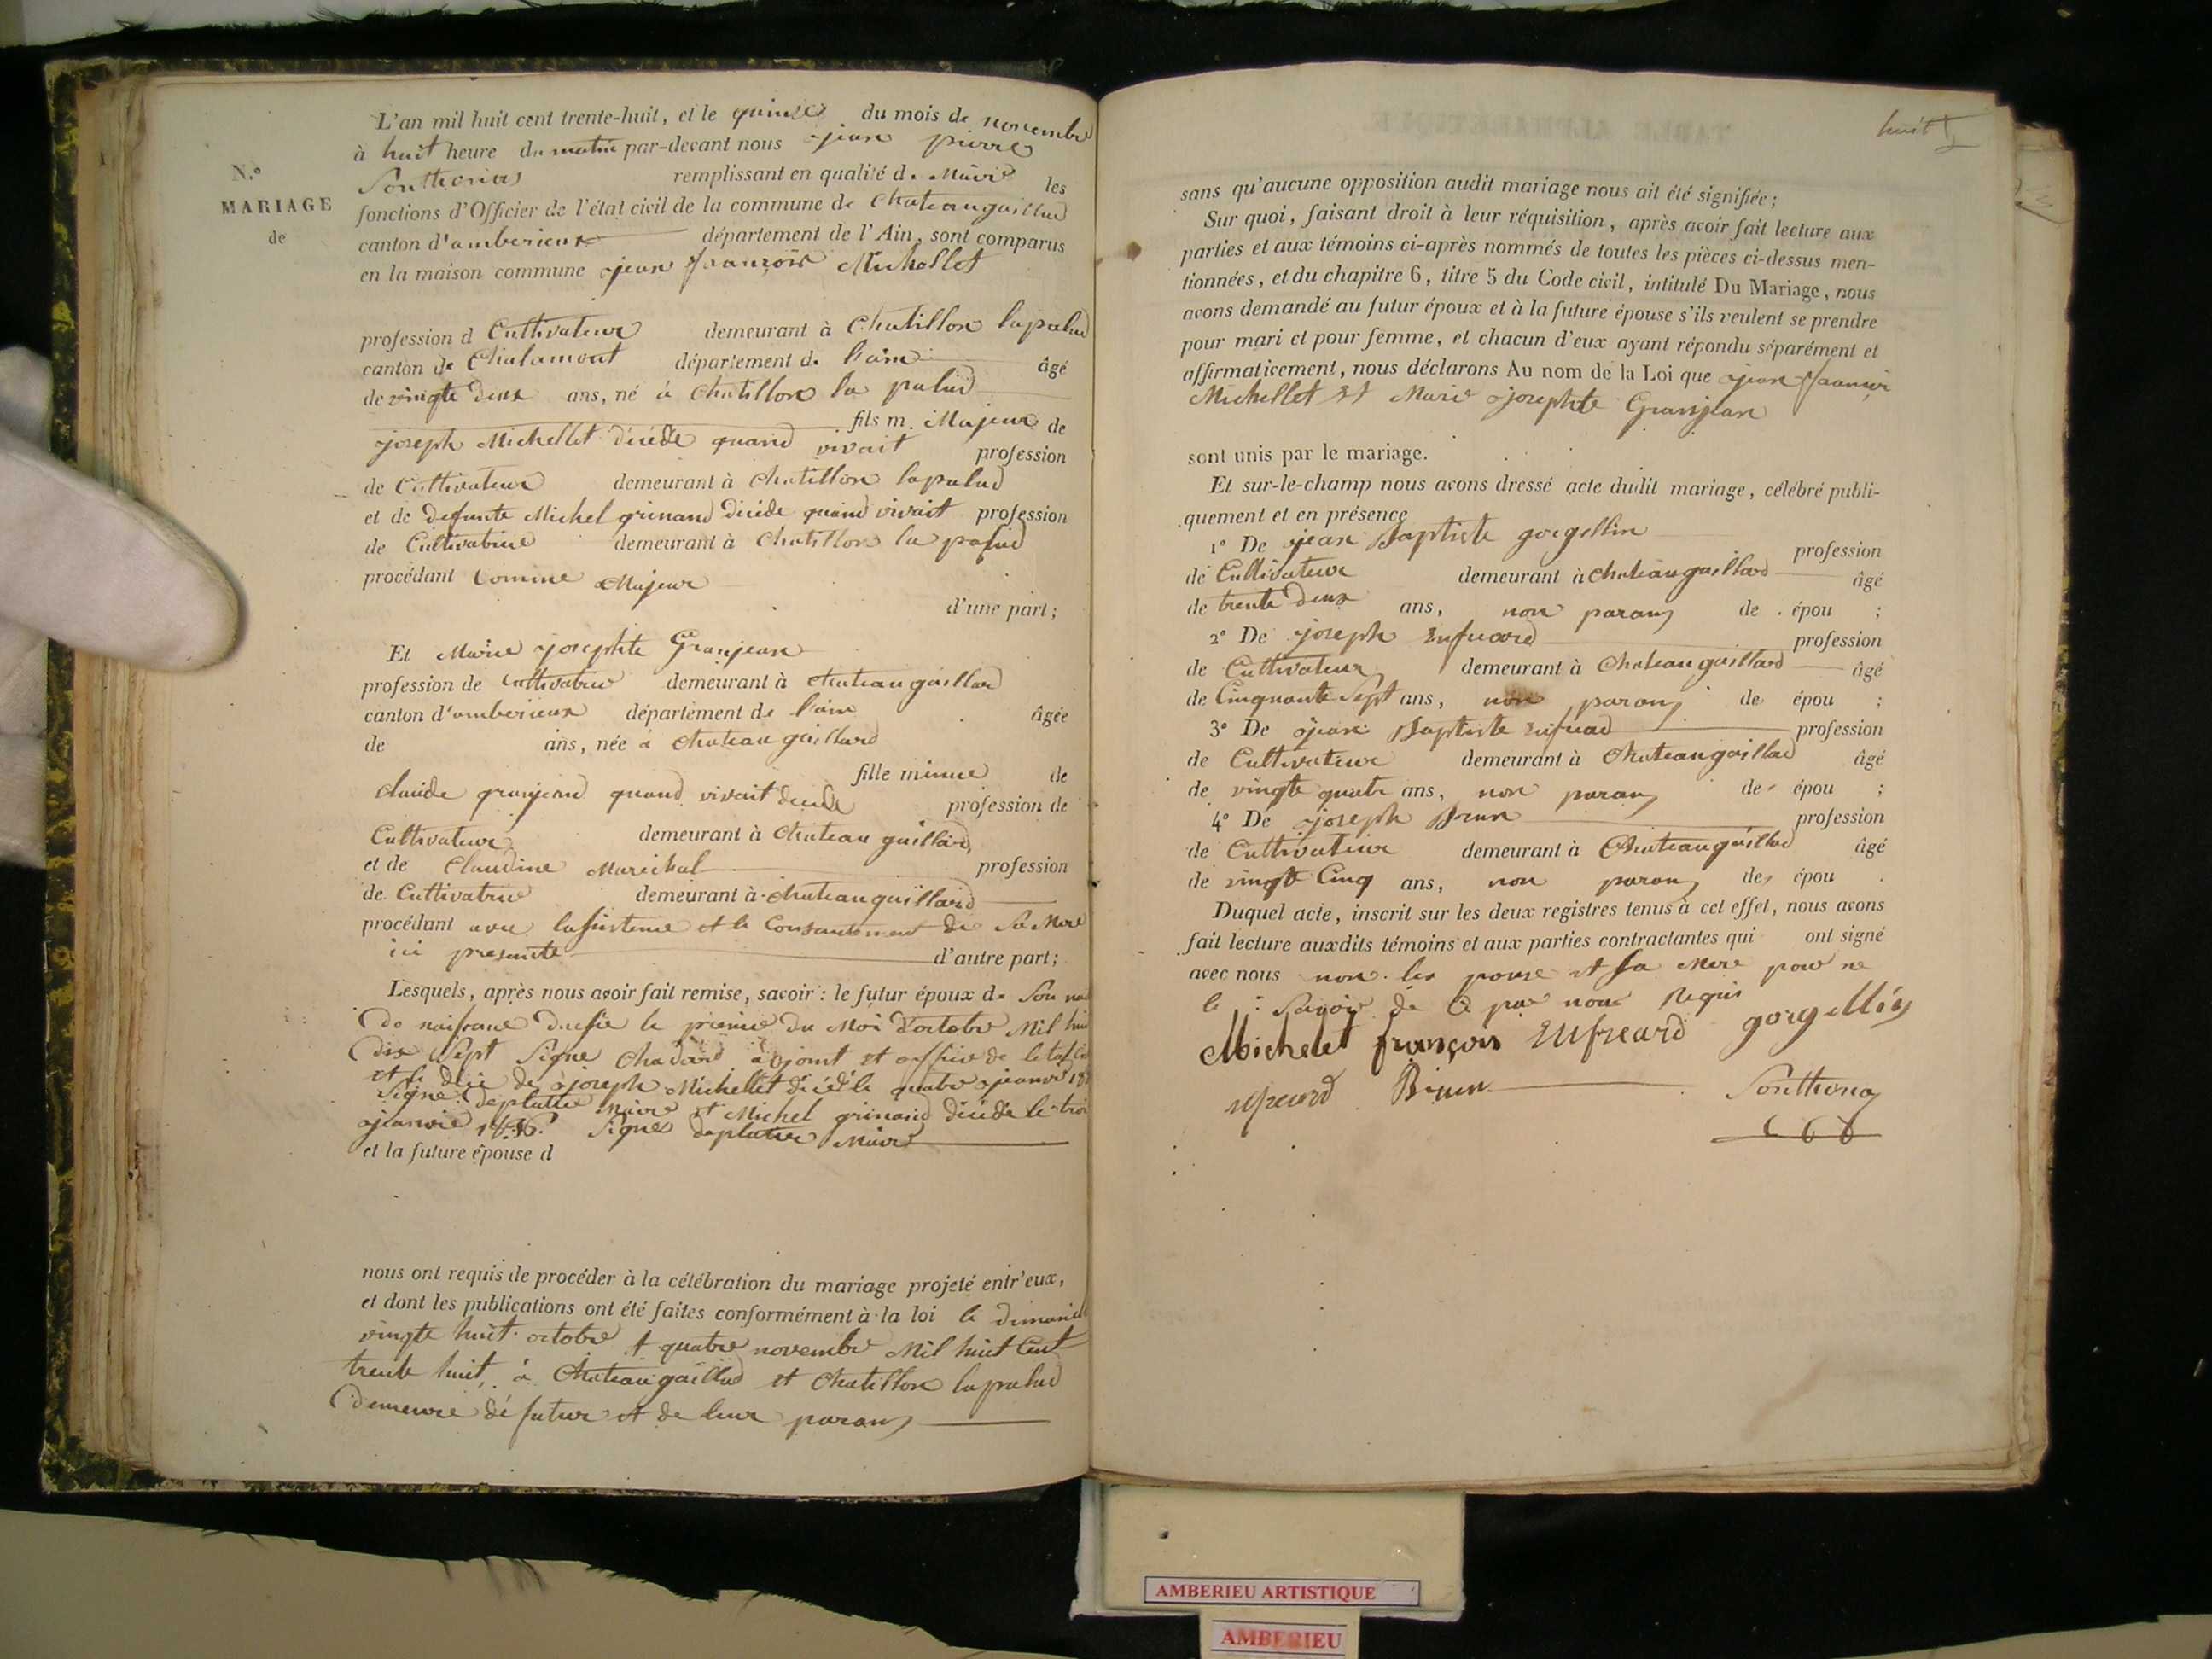 L'an mil huit cent trente-huit, et le quinze du mois de novembre
à huit heure du matin par-devant nous jean pierre
N.° Sonthonas remplissant en qualité de Maire les
MARIAGE fonctions d'Officier de l'état civil de la commune de Chateaugaillard
de canton d'amberieux département de l'Ain, sont comparus
en la maison commune jean françois Michellet
profession d Cultivateur demeurant à Chatillon lapalud
canton de Chalamont département de l'ain âgé
de vingte deux ans, né à Chatillon la palud
fils m. Majeur de
joseph Michellet décédé quand vivait profession
de Cultivateur demeurant à Chatillon lapalud
et de defunte Michel grinand décéde quand vivait profession
de Cultivatrice demeurant à Chatillon la palud
procédant Comme Majeur
d'une part;
Et Marie josephte Granjean
profession de Cultivatrice demeurant à Chateaugaillard
canton d'amberieux département de l'ain âgée
de ans, née à Chateaugaillard
fille mineure de
claude granjean quand vivait décéde profession de
Cultivateur demeurant à Chateaugaillard
et de Claudine Marechal profession
de Cultivatrice demeurant à Chateaugaillard
procédant avec et le Consentement de Sa Mere
ici presente d'autre part;
Lesquels, après nous avoir fait remise, savoir: le futur époux de Son
de naissance le premier du Moi d'octobre Mil
dix Sept Signé adjoint et officie de
et de joseph Michellet décédé le quatre
Signé Maire et Michel grinand décéde le
janvie Signé Maire
et la future épouse d
nous ont requis de procéder à la célébration du mariage projeté entr'eux,
et dont les publications ont été faites conformément à la loi le dimanche
vingte huit octobre et quatre novembre Mil huit Cent
trente huit, à Chateaugaillard et Chatillon lapalud
demeure dé futur et de leur parans
huit
sans qu'aucune opposition audit mariage nous ait été signifiée;
Sur quoi, faisant droit à leur réquisition, après avoir fait lecture aux
parties et aux témoins ci-après nommés de toutes les pièces ci-dessus men-
tionnées, et du chapitre 6, titre 5 du Code civil, intitulé Du Mariage, nous
avons demandé au futur époux et à la future épouse s'ils veulent se prendre
pour mari et pour femme, et chacun d'eux ayant répondu séparément et
affirmativement, nous déclarons Au nom de la Loi que jean françoir
Michellet et Marie josephte Granjean
sont unis par le mariage.
Et sur-le-champ nous avons dressé acte dudit mariage, célébré publi-
quement et en présence
1° De jean Baptiste gorgellin profession
de Cultivateur demeurant à Chateaugaillard âgé
de trente deux ans, non parans de épou ;
2° De joseph Enfreard profession
de Cultivateur demeurant à Chateaugaillard âgé
de Cinquante Sept ans, non parans de épou ;
3° De jean Baptiste profession
de Cultivateur demeurant à Chateaugaillard âgé
de vingte quatre ans, non parans de épou ;
4° De joseph Brun profession
de Cultivateur demeurant à Chateaugaillard âgé
de vingte Cinq ans, non parans de épou .
Duquel acte, inscrit sur les deux registres tenus à cet effet, nous avons
fait lecture auxdits témoins et aux parties contractantes qui ont signé
avec nous non les et Sa Mere pour ne
le Savoir de Ce par nous Requis
Michelet françois Enfreard gorgellin
Brun Sonthonas
AMBERIEU ARTISTIQUE
AMBERIEU